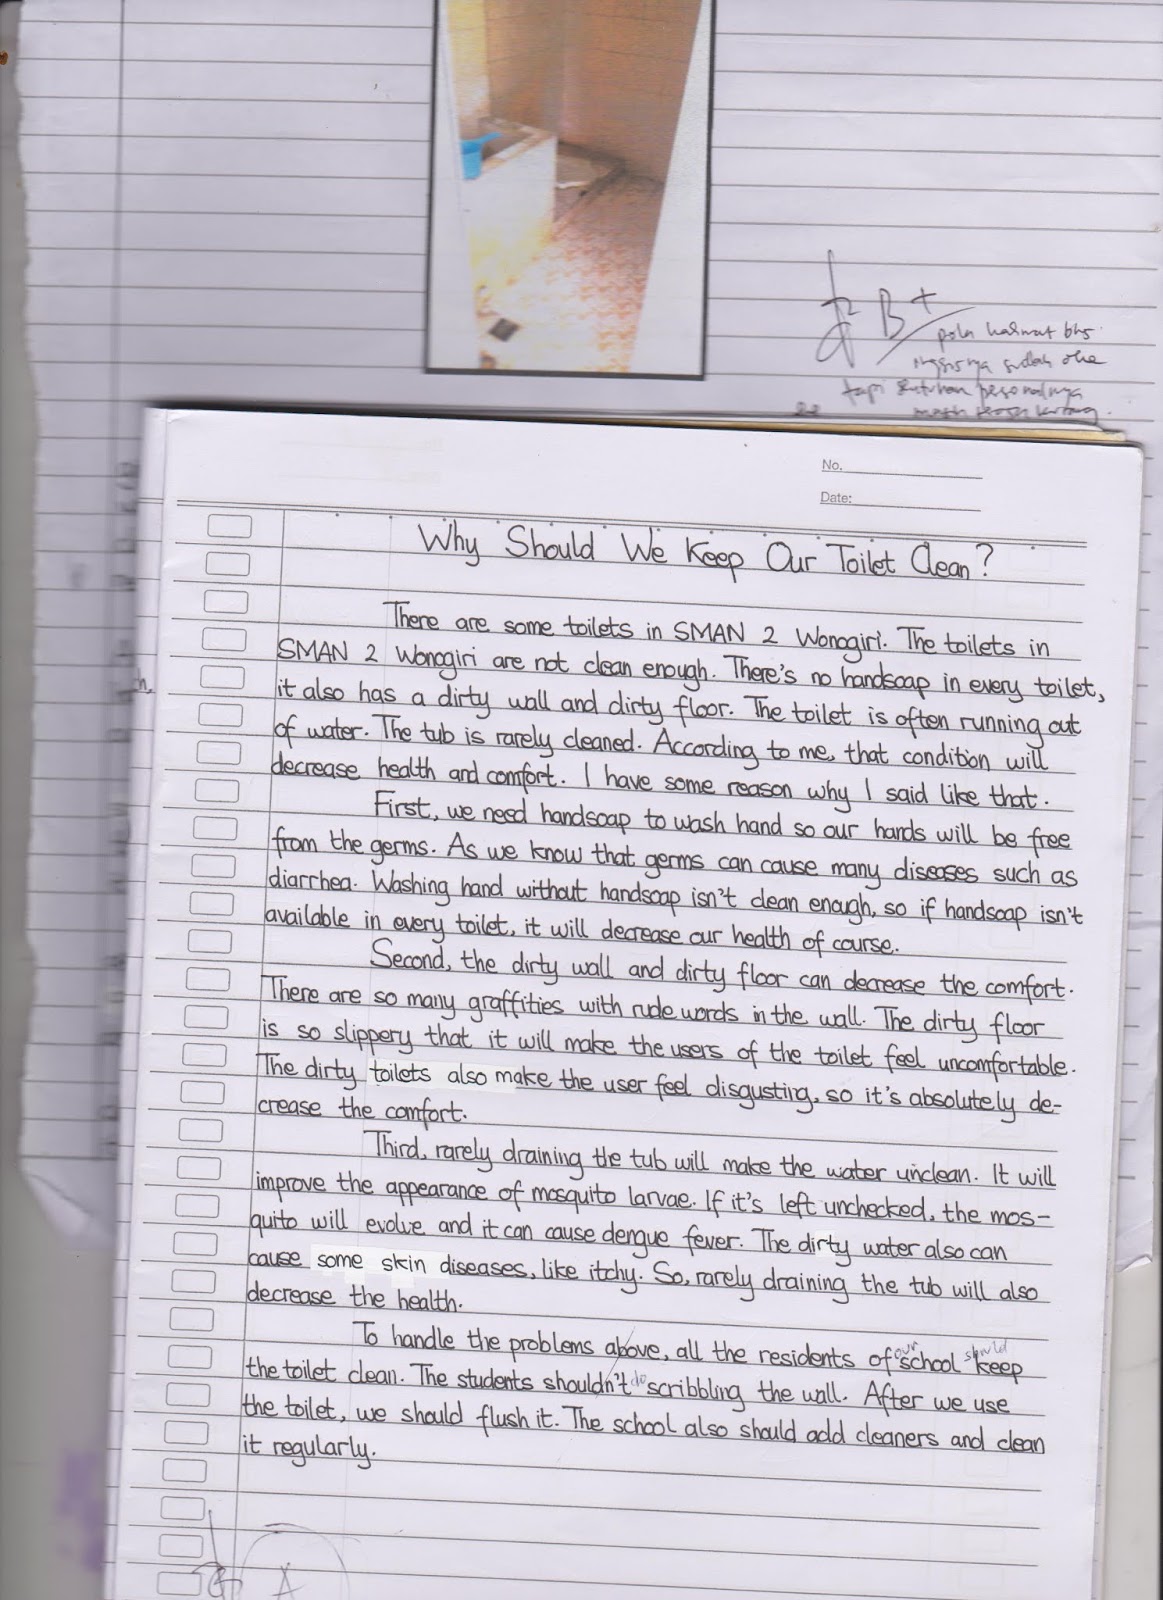 B+
pola kalimat bhs
Inggrisnya sudah oke
tapi sentuhan personalnya
masih terasa kurang.
No.
Date:
Why Should We Keep Our Toilet Clean?
There are some toilets in SMAN 2 Wonogiri. The toilets in
SMAN 2 Wonogiri are not clean enough. There's no handsoap in every toilet,
it also has a dirty wall and dirty floor. The toilet is often running out
of water. The tub is rarely cleaned. According to me, that condition will
decrease health and comfort. I have some reason why I said like that.
First, we need handsoap to wash hand so our hands will be free
from the germs. As we know that germs can cause many diseases such as
diarrhea. Washing hand without handsoap isn't clean enough, so if handsoap isn't
available in every toilet, it will decrease our health of course.
Second, the dirty wall and dirty floor can decrease the comfort.
There are so many graffities with rude words in the wall. The dirty floor
is so slippery that it will make the users of the toilet feel uncomfortable.
The dirty toilets also make the user feel disgusting, so it's absolutely de-
crease the comfort.
Third, rarely draining the tub will make the water unclean. It will
improve the appearance of mosquito larvae. If it's left unchecked, the mos-
quito will evolve and it can cause dengue fever. The dirty water also can
cause some skin diseases, like itchy. So, rarely draining the tub will also
decrease the health.
To handle the problems above, all the residents of our school should keep
the toilet clean. The students shouldn't do scribbling the wall. After we use
the toilet, we should flush it. The school also should add cleaners and clean
it regularly.
A